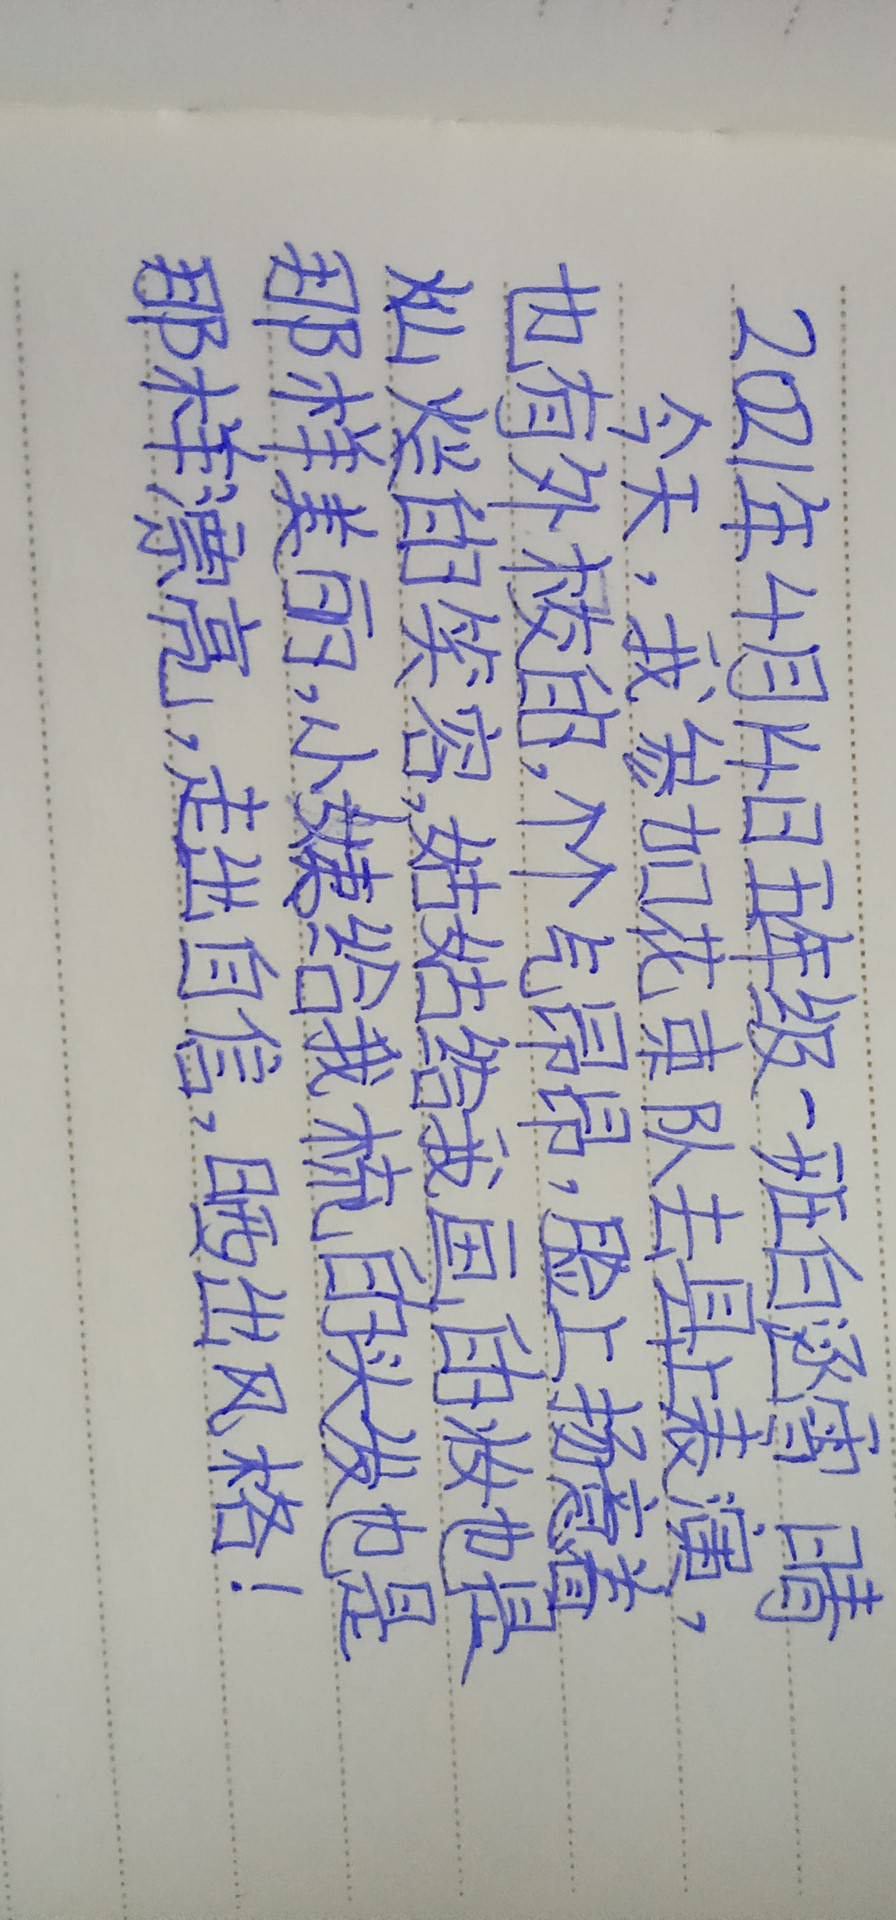 2021年4月14日五年级一班白逐雪 晴
今天，我参加花束队去县上表演，
也有外校的，个个气昂昂，脸上扬意着
灿烂的笑容，姑姑给我画的妆也是
那样美的，小姨给我梳的头发也是
那样漂亮，走出自信，晒出风格！